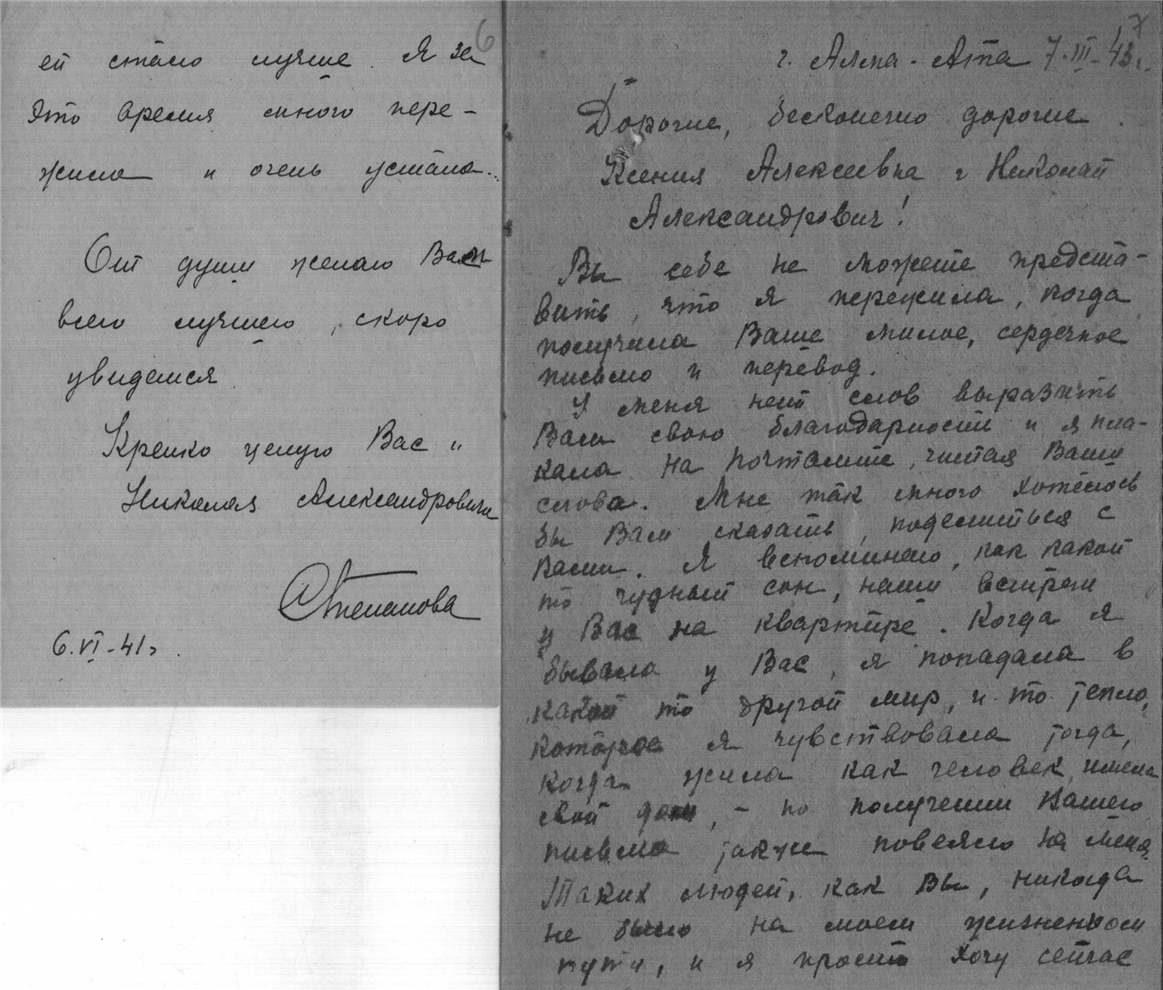 6
ей стало лучше. Я за
это время много пере-
жила и очень устала.
От души желаю Вам
всего лучшего, скоро
увидемся.
Крепко целую Вас и
Николая Александровича
Степанова
6.VI-41г.
7
г. Алма-Ата 7.III-43г.
Дорогие, бесконечно дорогие
Ксения Алексеевна и Николай
Александрович!
Вы себе не можете предста-
вить, что я пережила, когда
получила Ваше милое, сердечное
письмо и перевод.
У меня нет слов выразить
Вам свою благодарность и я пла-
кала на почтамте, читая Ваши
слова. Мне так много хотелось
бы Вам сказать, поделиться с
Вами. Я вспоминаю, как какой
то чудный сон, наши встречи
у Вас на квартире. Когда я
бывала у Вас, я попадала в
какой то другой мир, и то тепло,
которое я чувствовала тогда,
когда жила как человек, имела
свой дом, - по получении Вашего
письма также повеяло на меня.
Таких людей, как Вы, никогда
не было на моем жизненном
пути, и я просто хочу сейчас